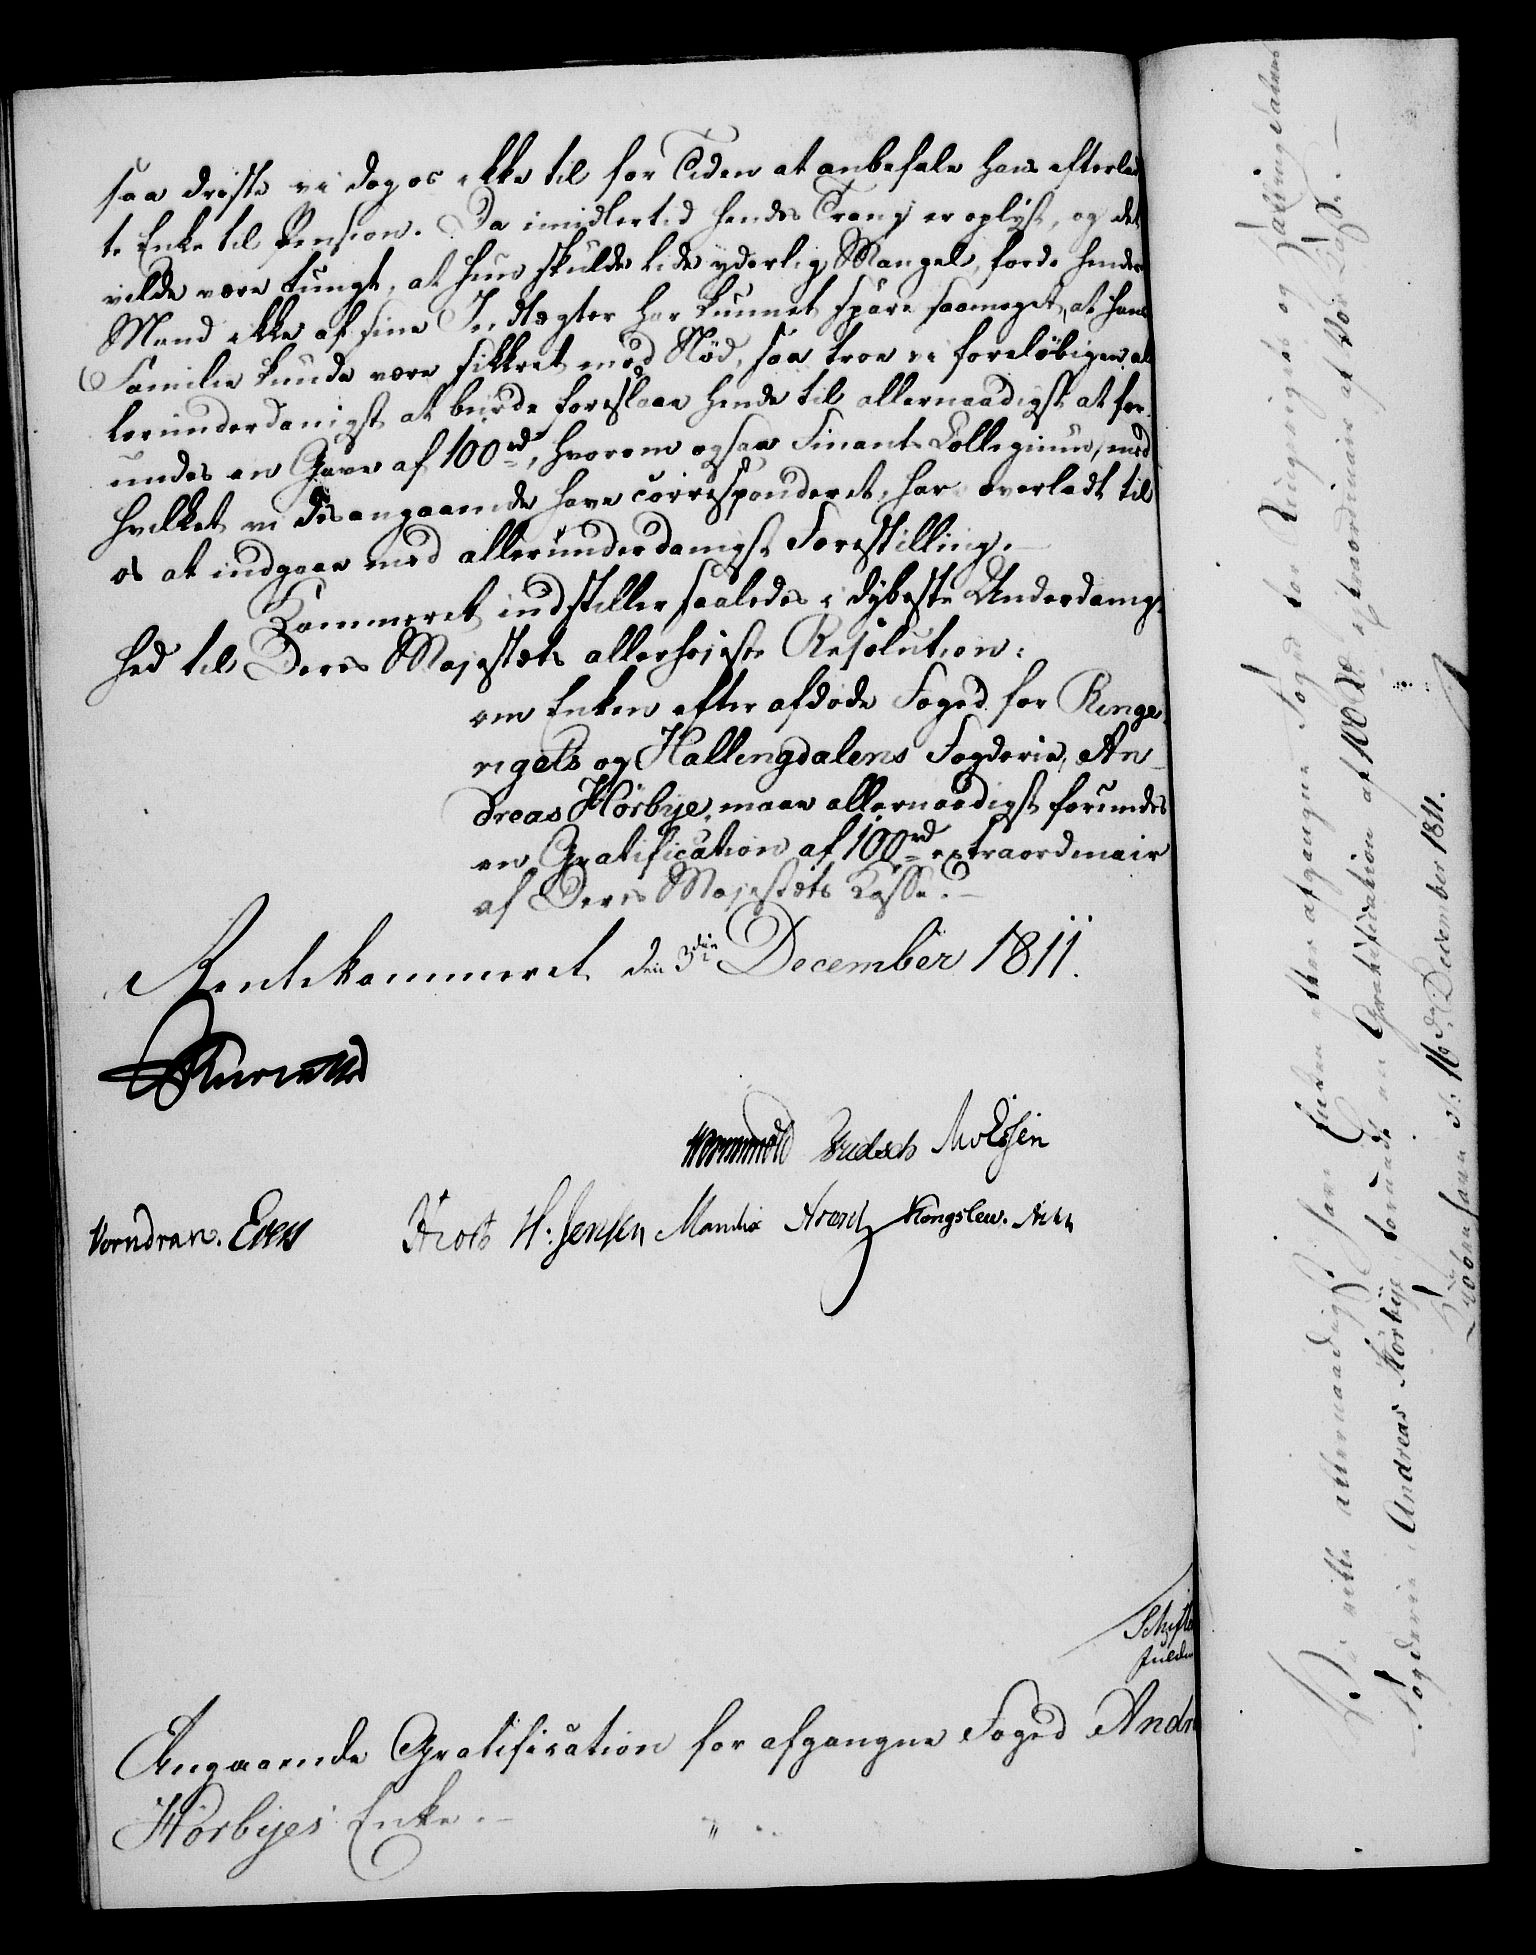 saa driste vi dog os ikke til for Tiden at anbefale hans efterlad
te Enke til Pension. Da imidlertid hendes Trang er oplÿst, og det
vilde være tungt, at hun skulde lide yderlig Mangel, fordi hendes
Mand ikke af sine Indtægter har kunnet spare saameget, at hans
Familie kunde være sikkret mod Nød, saa troe vi foreløbigen al
lerunderdanigst at burde foreslaae hende til allernaadigst at for
undes en Gave af 100 rd, hvorom ogsaa Finants Collegium, med
hvilket vi desangaaende have correspondéret, har overladt til
os at indgaae med allerunderdanigst Forestilling.
Kammeret indstiller saaledes i dÿbeste Underdanig-
hed til Deres Majestæts allerhøjeste Resolution:
om Enken efter afdøde Foged for Ringe-
rigets og Hallingdalens Fogderie, An-
dreas Hörbye, maae allernaadigst forundes
en Gratification af 100 rd extraordinair
af Deres Majestæts Kasse? —
Rentekammeret den 3die December 1811.
Wormskiold
Vorndran. Evers H. Jensen Manthe Arentz Kongslew.
Angaaende Gratification for afgangne Foged Andr
Hörbÿes Enke. —
Vi ville allernaadigst have Enken efter afgangne Foged for Ringerigets og Hallingdalens
Fogderie Andreas Hörbÿe forundt en Gratification af 100 rd extraordinair af Vor Kasse. —
Kiøbenhavn d: 16 de December 1811.